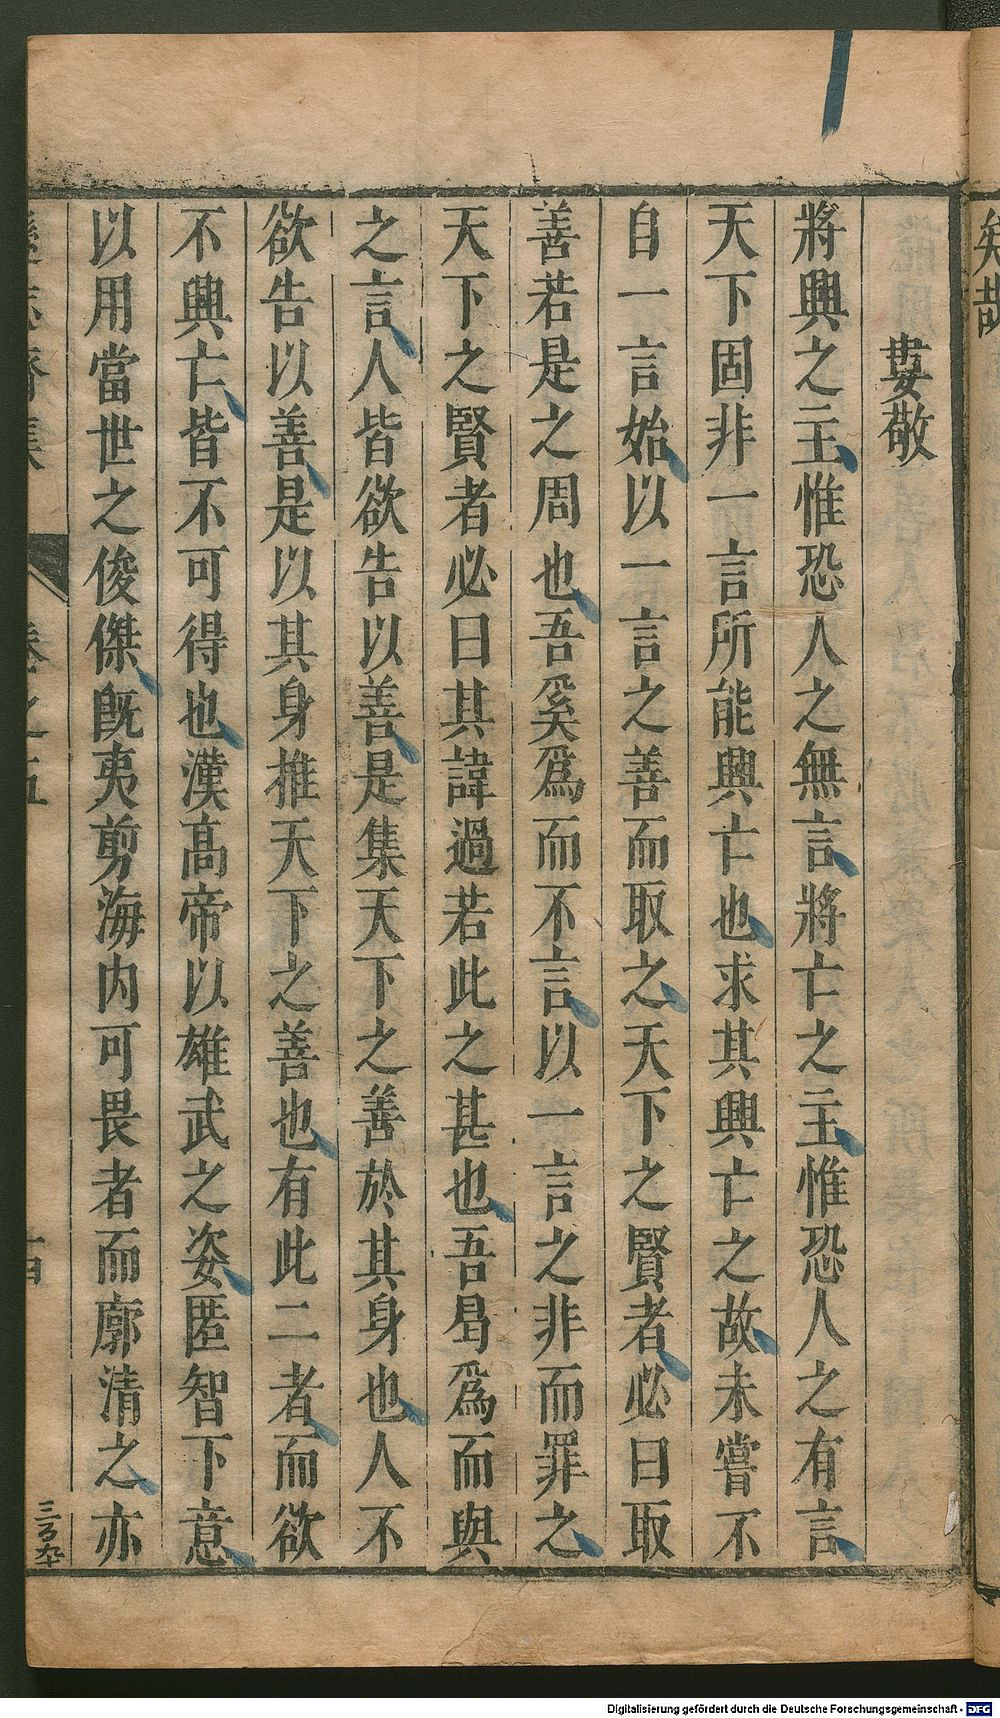 婁敬
將興之主惟恐人之無言將亡之主惟恐人之有言
天下固非一言所能興亡也求其興亡之故未嘗不
自一言始以一言之善而取之天下之賢者必曰取
善若是之周也吾奚爲而不言以一言之非而罪之
天下之賢者必曰其諱過若此之甚也吾曷爲而與
之言人皆欲告以善是集天下之善於其身也人不
欲告以善是以其身推天下之善也有此二者而欲
不興亡皆不可得也漢高帝以雄武之姿匿智下意
以用當世之俊傑旣夷剪海内可畏者而廓清之亦
卷之五
Digitalisierung gefördert durch die Deutsche Forschungsgemeinschaft - DFG